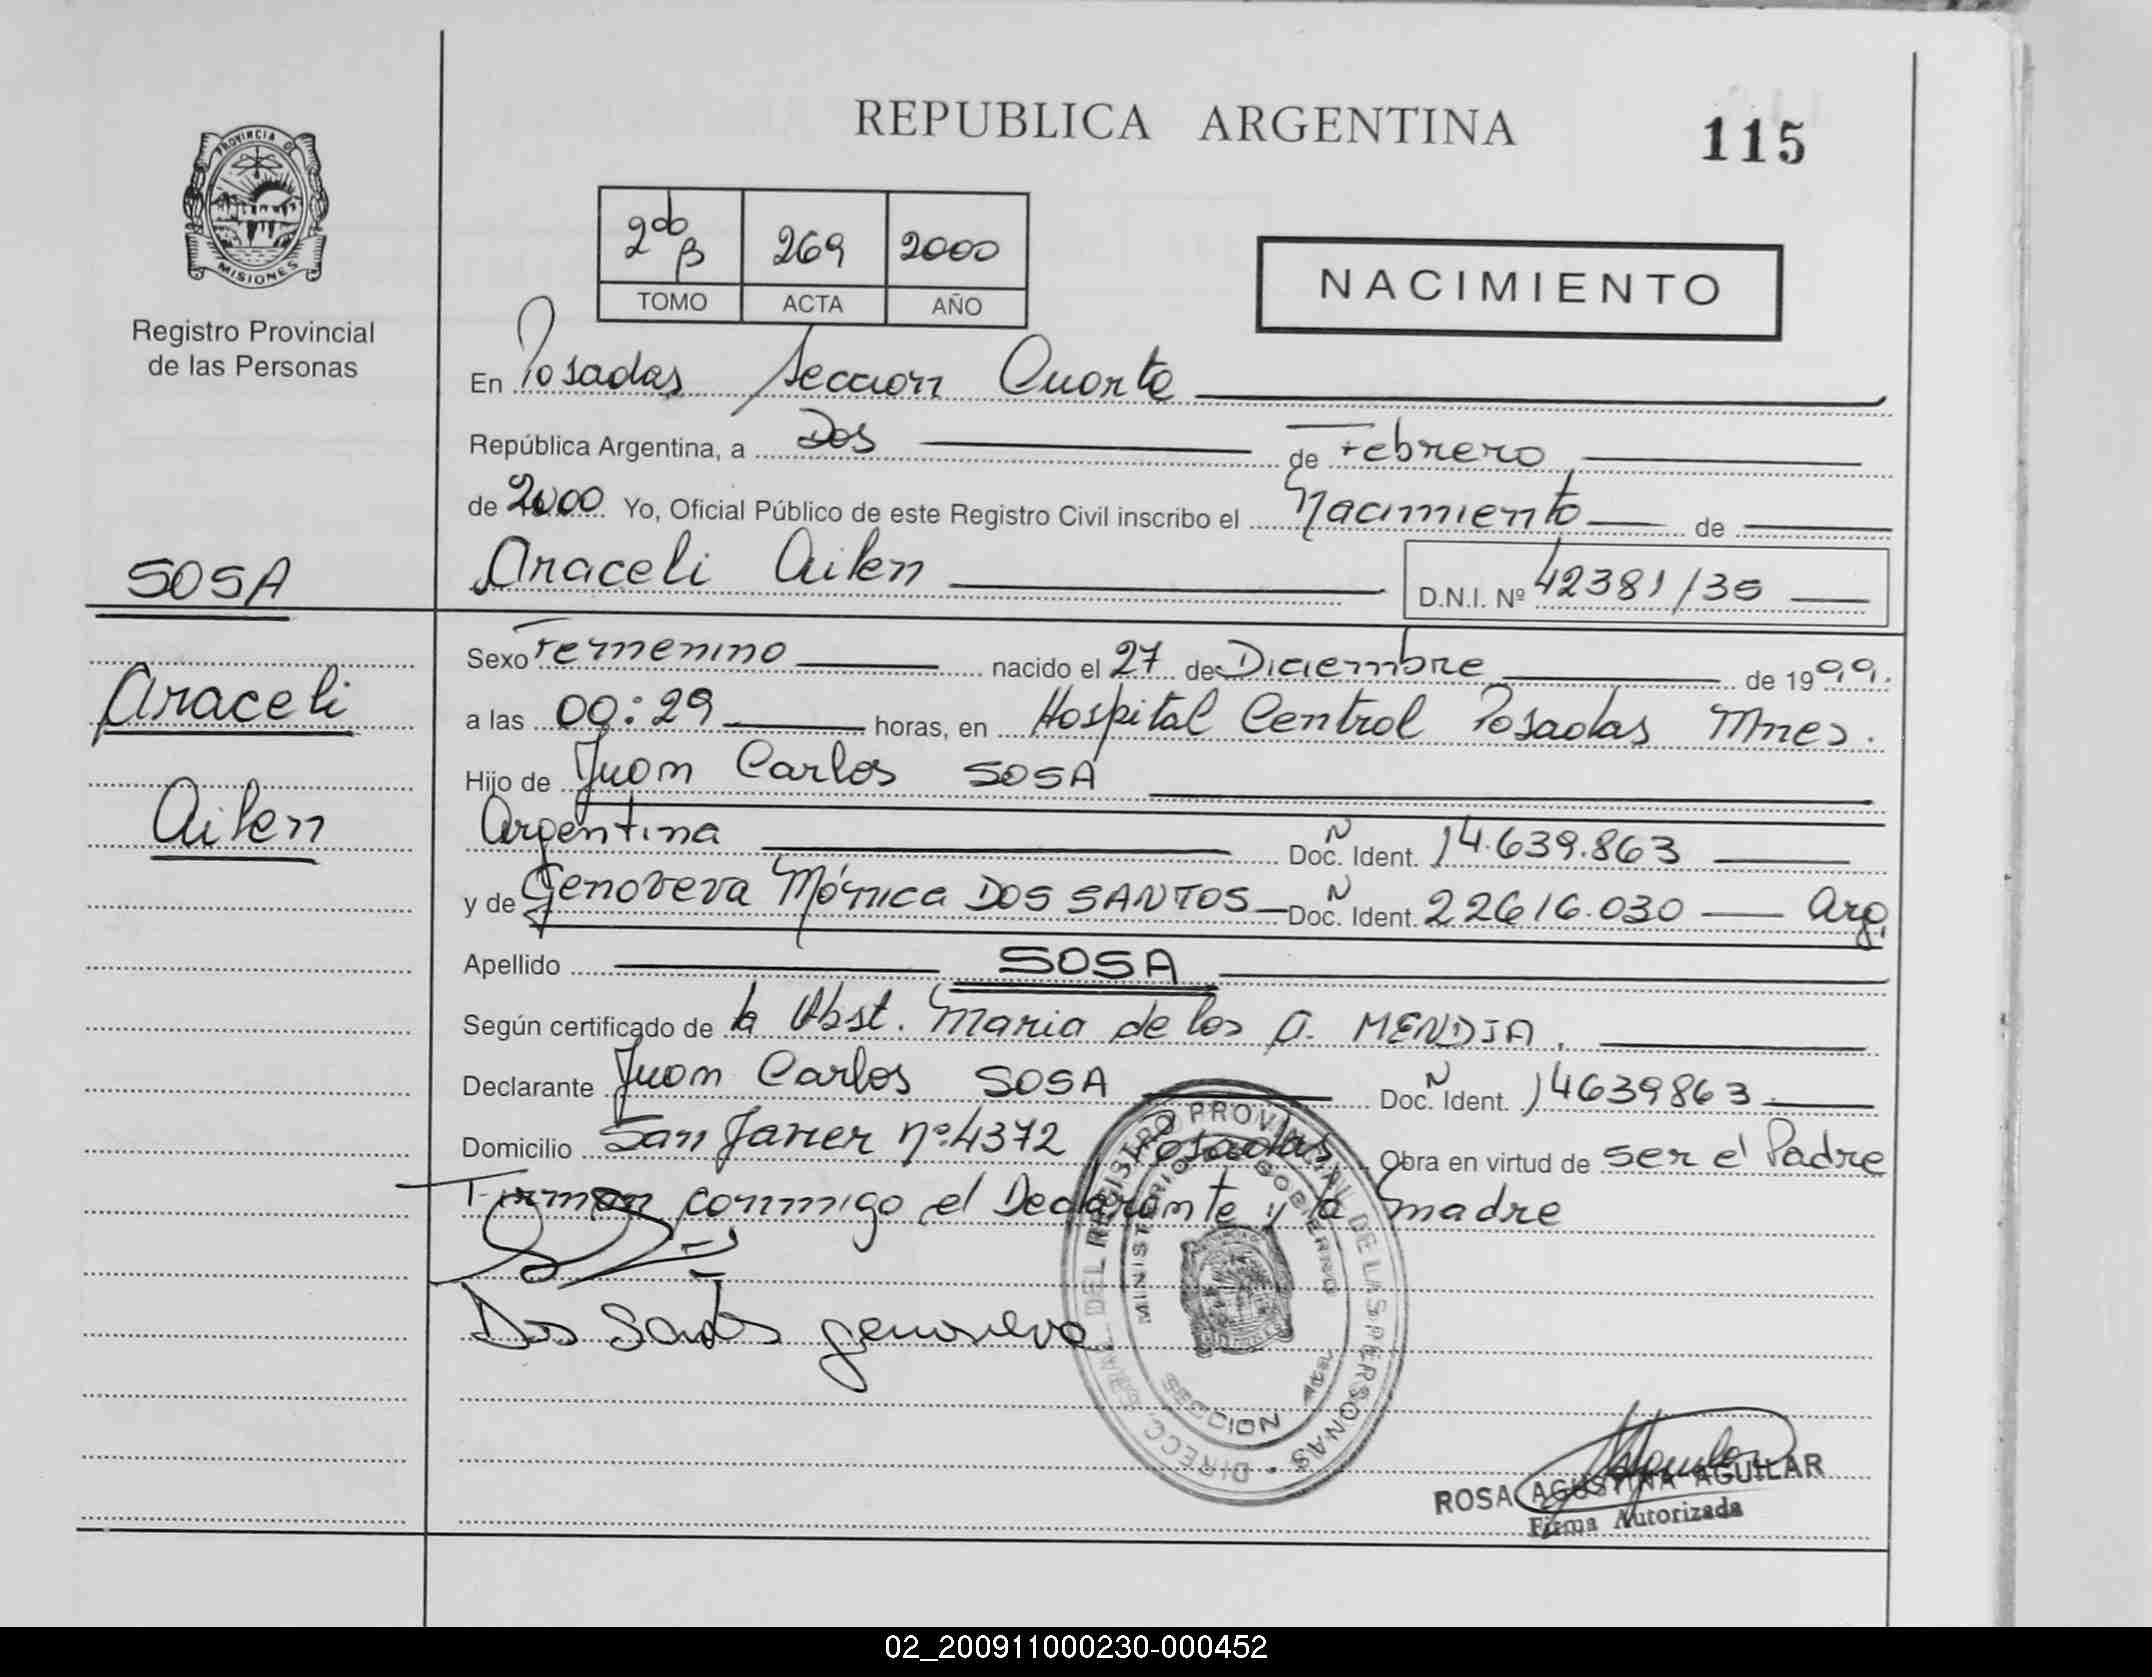 REPUBLICA ARGENTINA
115
PROVINCIA DE
MISIONES
Registro Provincial
de las Personas
2do B 269 2000
TOMO ACTA AÑO
NACIMIENTO
En Posadas Seccion Cuarta
República Argentina, a Dos de Febrero
de 2000 Yo, Oficial Público de este Registro Civil inscribo el Nacimiento de
SOSA
Araceli Ailen D.N.I. Nº
Araceli
Ailen
Sexo Femenino nacido el 27 de Diciembre de 1999.
a las 00:29 horas, en Hospital Central Posadas Mnes.
Hijo de Juan Carlos SOSA
Argentina Doc. Ident. N 14.639.863
y de Genoveva Mónica DOS SANTOS Doc. Ident. N 22616.030 Arg.
Apellido SOSA
Según certificado de la Obst. Maria de los A. MENDIA.
Declarante Juan Carlos SOSA Doc. Ident. N 14639863
Domicilio San Javier Nº 4372 Posadas Obra en virtud de ser el Padre
Firman conmigo el Declarante y la madre
Dos Santos genoveva
DIRECC. GRAL. DEL REGISTRO PROVINCIAL DE LAS PERSONAS
MINISTERIO DE GOBIERNO
SECCION 4ta
ROSA AGUSTINA AGUILAR
Firma Autorizada
02_200911000230-000452